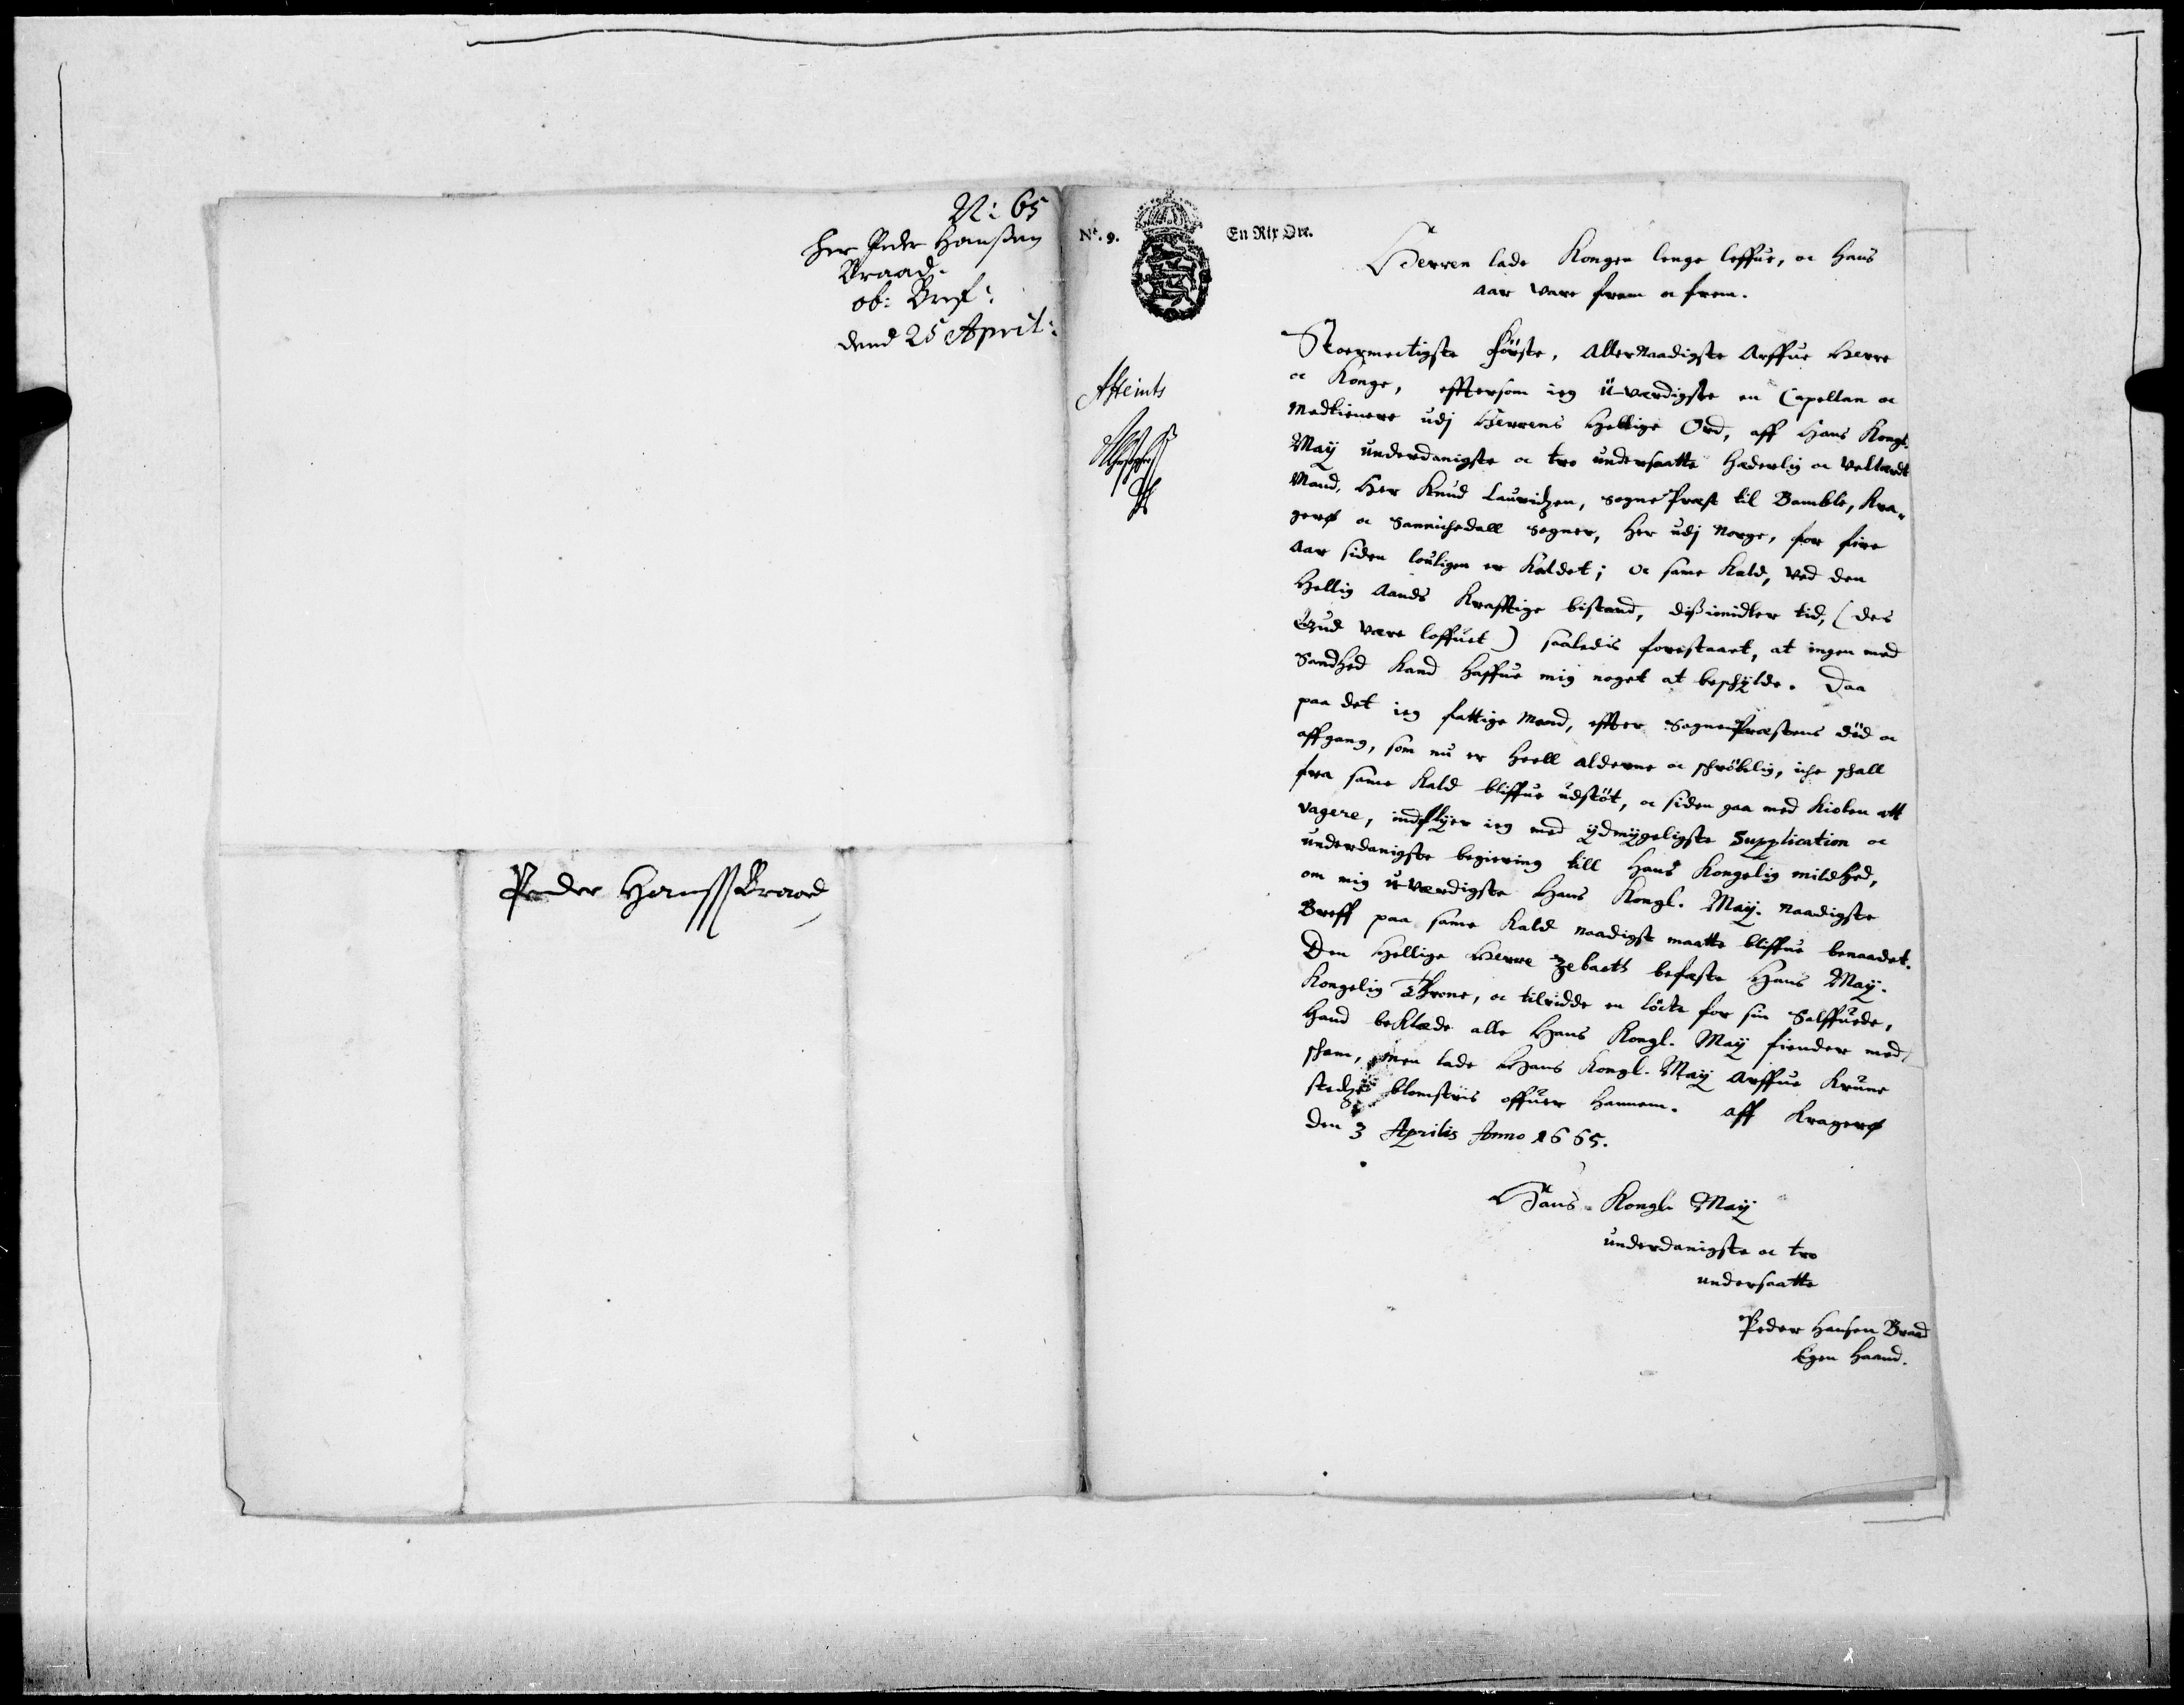 N: 65
Her Peder Hanßen
Braad.
ob: Bref:
dend 25 April:
Peder Hanss Braad
Nº. 9.
En Rix Ort.
Herren lade Kongen lenge leffue, oc Hans
aar vare frem oc frem.
Stoermectigste Förste, AllerNaadigste Arffue Herre
oc Konge, efftersom ieg üværdigste en Capellan oc
Medtienere udj Herrens Hellige Ord, aff Hans Kongl.
Maÿ underdanigste oc tro undersaatte Hæderlig oc Vellærdt
Mand, Her Knud Lauridzen, SognePræst til Bamble, Kra-
gerø oc Sannichedall Sogner, Her udj Norge, for fire
Aar siden louligen er Kaldet; Oc same Kald, Ved den
Hellig Aands Krafftige bistand, dißimidler tid, (des
Gud være loffuet) saaledis forestaaet, at ingen med
Sandhed Kand Haffue mig noget at beschylde. Daa
paa det ieg fattige Mand, effter SognePræstens död oc
affgang, som nu er Heell alderne oc schröbelig, iche schall
fra same Kald bliffue udstöt, oc siden gaa med Kiolen att
vagere, indflÿer ieg med ÿdmÿgeligste Supplication oc
underdanigste begiering till Hans Kongelig mildhed,
om mig uværdigste Hans Kongl. Maÿ. Naadigste
Breff paa same Kald naadigst maatte bliffue benaadet.
Den Hellige Herre Zebaoth befæste Hans Maÿ.
Kongelig Throne, oc tilridde en löcte for sin Salffuede,
Hand beKlæde alle Hans Kongl. Maÿ fiender med
scham, men lade Hans Kongl. Maÿ Arffue Krune
stedze blomstris offuer Hannem. Aff Kragerø
den 3 Aprilis Anno 1665.
Hans Kongl. Maÿ
underdanigste oc tro
undersaatte
Peder Hansen Braad
Egen Haand.